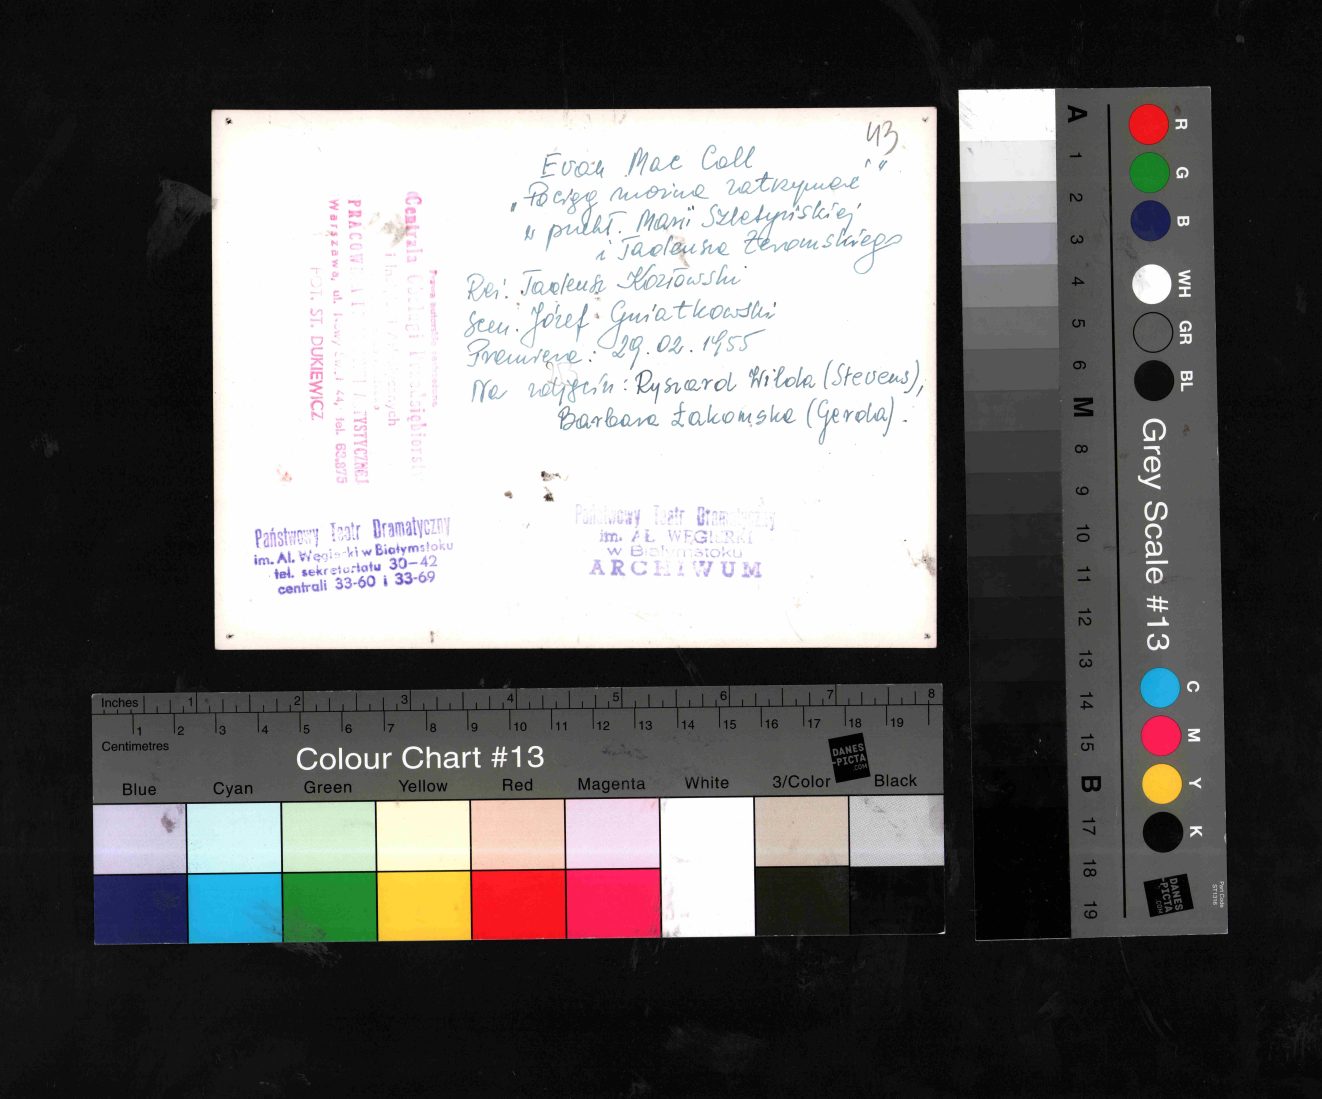 43
Evan Mac Coll
"Pociąg można zatrzymać"
w przekł. Marii Szletyńskiej
i Tadeusza Żeromskiego
Reż. Tadeusz Kozłowski
Scen. Józef Gniatkowski
Premiera: 29.02.1955
Na zdjęciu: Ryszard Wilda (Stevens),
Barbara Łakomska (Gerda).
Centrala Obsługi Przedsiębiorstw
PRACOWNIA
Warszawa, ul. 44, tel. 62.875
FOT. ST. DUKIEWICZ
Państwowy Teatr Dramatyczny
im. Al. Węgierki w Białymstoku
tel. sekretariatu 30-42
centrali 33-60 i 33-69
Państwowy Teatr Dramatyczny
im. AL. WĘGIERKI
w Białymstoku
ARCHIWUM
Inches 1 2 3 4 5 6 7 8
1 2 3 4 5 6 7 8 9 10 11 12 13 14 15 16 17 18 19
Centimetres
Colour Chart #13
DANES
-PICTA
.COM
Blue Cyan Green Yellow Red Magenta White 3/Color Black
A 1 2 3 4 5 6 M 8 9 10 11 12 13 14 15 B 17 18 19
R G B WH GR BL
Grey Scale #13
C M Y K
DANES
-PICTA
.COM
Part Code
ST1316